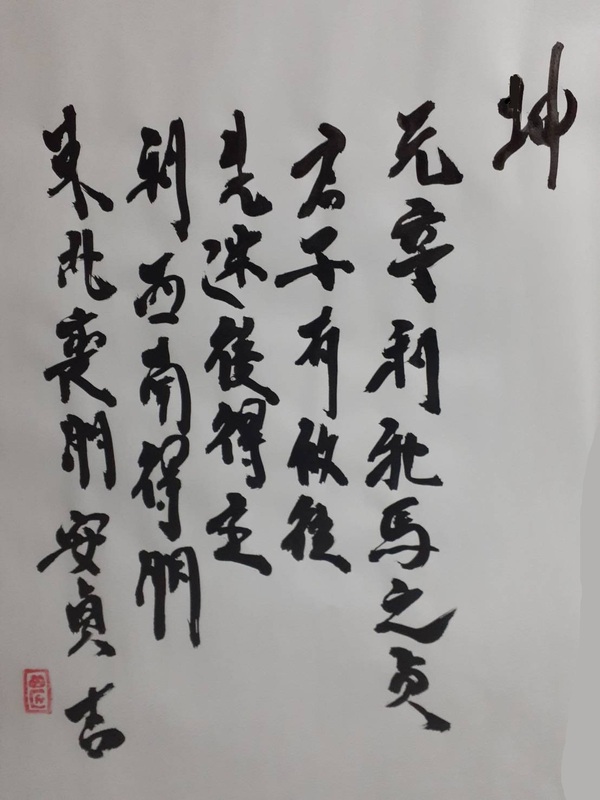 坤
元亨利牝馬之貞
君子有攸往
先迷後得主
利西南得朋
東北喪朋安貞吉